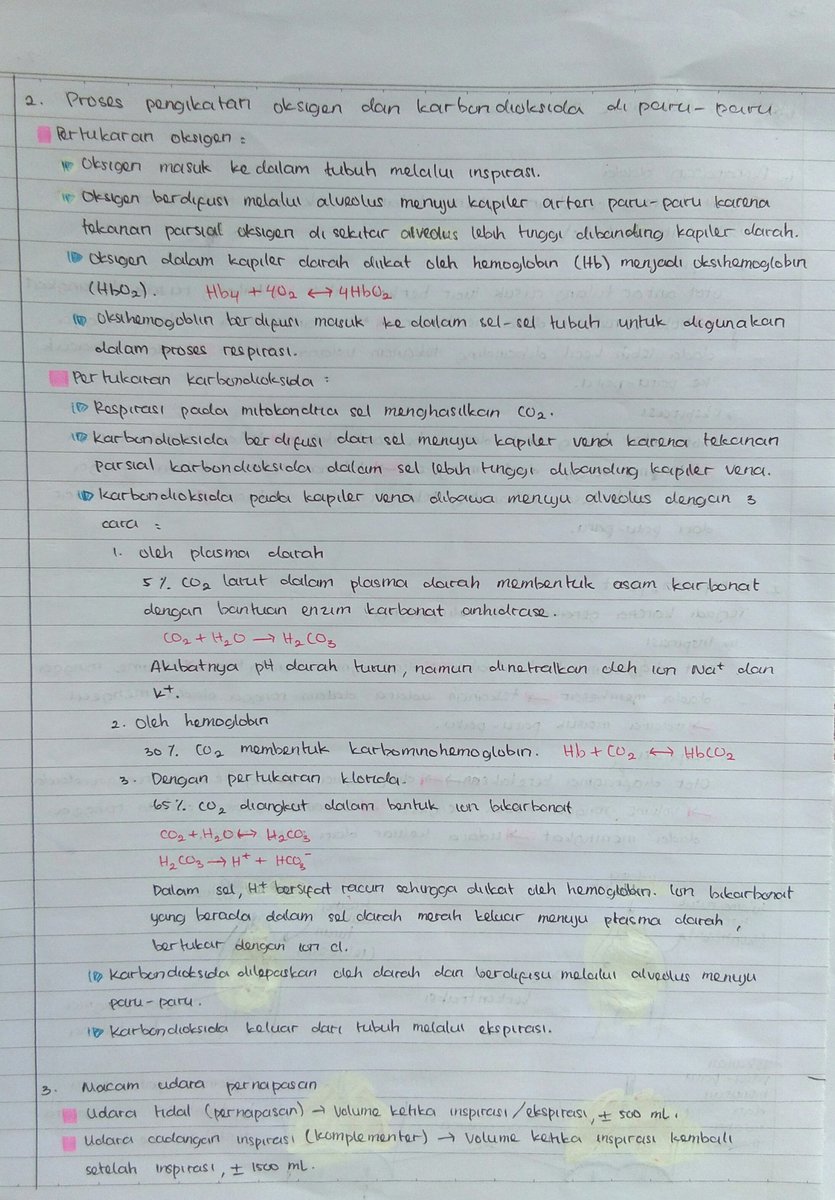 2. Proses pengikatan oksigen dan karbondioksida di paru-paru
Pertukaran oksigen :
Oksigen masuk ke dalam tubuh melalui inspirasi.
Oksigen berdifusi melalui alveolus menuju kapiler arteri paru-paru karena
tekanan parsial oksigen di sekitar alveolus lebih tinggi dibanding kapiler darah.
Oksigen dalam kapiler darah diikat oleh hemoglobin (Hb) menjadi oksihemoglobin
(HbO₂). Hb₄ + 4O₂ ↔ 4HbO₂
Oksihemogoblin berdifusi masuk ke dalam sel-sel tubuh untuk digunakan
dalam proses respirasi.
Pertukaran karbondioksida :
Respirasi pada mitokondria sel menghasilkan CO₂.
Karbondioksida berdifusi dari sel menuju kapiler vena karena tekanan
parsial karbondioksida dalam sel lebih tinggi dibanding kapiler vena.
Karbondioksida pada kapiler vena dibawa menuju alveolus dengan 3
cara :
1. Oleh plasma darah
5% CO₂ larut dalam plasma darah membentuk asam karbonat
dengan bantuan enzim karbonat anhidrase.
CO₂ + H₂O → H₂CO₃
Akibatnya pH darah turun, namun dinetralkan oleh ion Na⁺ dan
K⁺.
2. Oleh hemoglobin
30% CO₂ membentuk karbominohemoglobin. Hb + CO₂ ↔ HbCO₂
3. Dengan pertukaran klorida.
65% CO₂ diangkut dalam bentuk ion bikarbonat
CO₂ + H₂O ↔ H₂CO₃
H₂CO₃ → H⁺ + HCO₃⁻
Dalam sel, H⁺ bersifat racun sehingga diikat oleh hemoglobin. Ion bikarbonat
yang berada dalam sel darah merah keluar menuju plasma darah,
bertukar dengan ion cl.
Karbondioksida dilepaskan oleh darah dan berdifisu melalui alveolus menuju
paru-paru.
Karbondioksida keluar dari tubuh melalui ekspirasi.
3. Macam udara pernapasan
Udara tidal (pernapasan) → volume ketika inspirasi/ekspirasi, ± 500 mL.
Udara cadangan inspirasi (komplementer) → volume ketika inspirasi kembali
setelah inspirasi, ± 1500 mL.